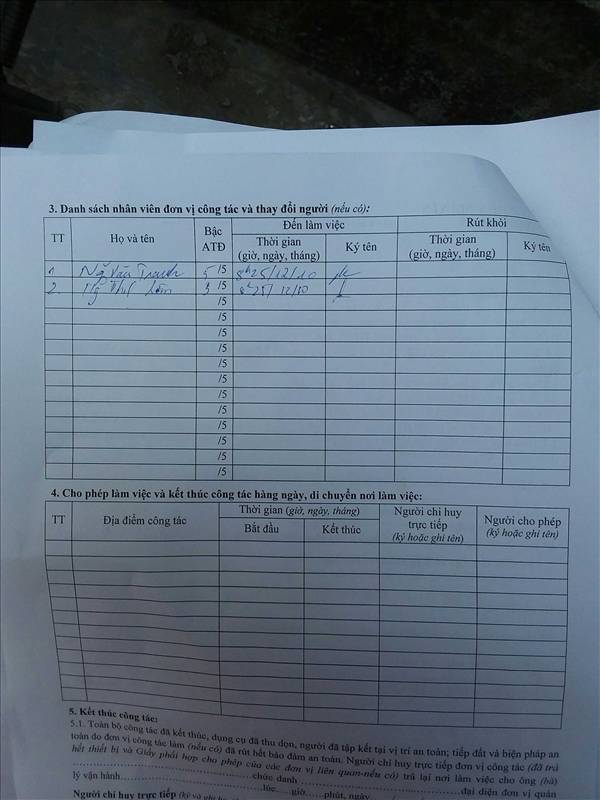 3. Danh sách nhân viên đơn vị công tác và thay đổi người (nếu có):
TT Họ và tên Bậc ATĐ Đến làm việc Rút khỏi
Thời gian (giờ, ngày, tháng) Ký tên Thời gian (giờ, ngày, tháng) Ký tên
1 Ng Văn 5 /5 8h25/12/10
2. Ng 3 /5 8h25/12/10
/5
/5
/5
/5
/5
/5
/5
/5
/5
/5
/5
/5
4. Cho phép làm việc và kết thúc công tác hàng ngày, di chuyển nơi làm việc:
TT Địa điểm công tác Thời gian (giờ, ngày, tháng) Người chỉ huy trực tiếp (ký hoặc ghi tên) Người cho phép (ký hoặc ghi tên)
Bắt đầu Kết thúc
5. Kết thúc công tác:
5.1. Toàn bộ công tác đã kết thúc, dụng cụ đã thu dọn, người đã tập kết tại vị trí an toàn; tiếp đất và biện pháp an
toàn do đơn vị công tác làm (nếu có) đã rút hết bảo đảm an toàn. Người chỉ huy trực tiếp đơn vị công tác (đã trả
hết thiết bị và Giấy phối hợp cho phép của các đơn vị liên quan-nếu có) trả lại nơi làm việc cho ông (bà)
chức danh đại diện đơn vị quản
lý vận hành lúc giờ phút, ngày
Người chỉ huy trực tiếp